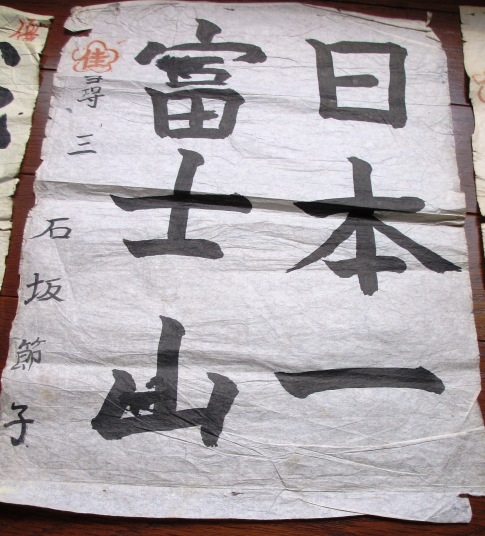 日本一
富士山
佳
尋三
石坂節子